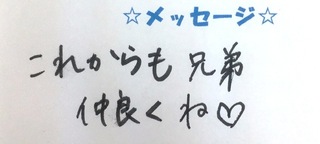 ☆メッセージ☆
これからも兄弟
仲良くね♡